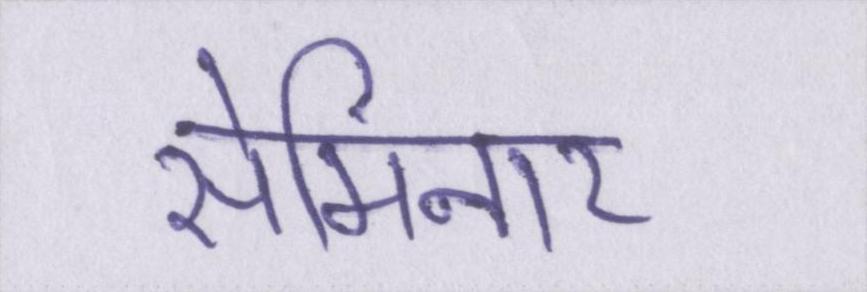 सेमिंनार